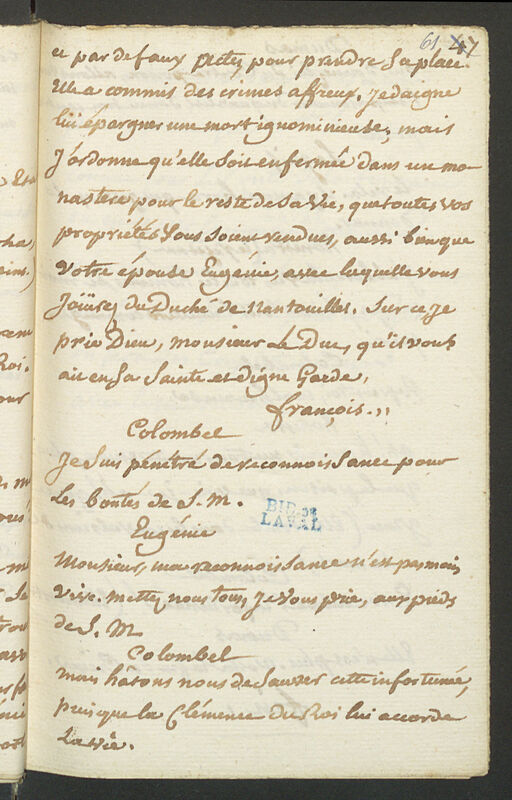 61 47
et par de faux actes, pour prendre sa place.
Elle a commis des crimes affreux. Je daigne
lui épargner une mort ignominieuse, mais
J'ordonne qu'elle soit enfermée dans un mo-
nastere pour le reste de sa vie, que toutes vos
propriétés vous soient rendues, aussi bien que
votre épouse Eugénie, avec laquelle vous
Joüirez du Duché de Nantouillet. Sur ce Je
prie Dieu, monsieur Le Duc, qu'il vous
ait en sa sainte et digne Garde,
françois.,,
Colombel
Je suis pénétré de reconnoissance pour
Les bontés de S. M.
BIB. DE
LAVAL
Eugénie
Monsieur, ma reconnoissance n'est pas moins
vive. mettez nous tous, Je vous prie, aux pieds
de S. M.
Colombel
mais hâtons nous de sauver cette infortunée,
puisque la Clémence du Roi lui accorde
La vie.